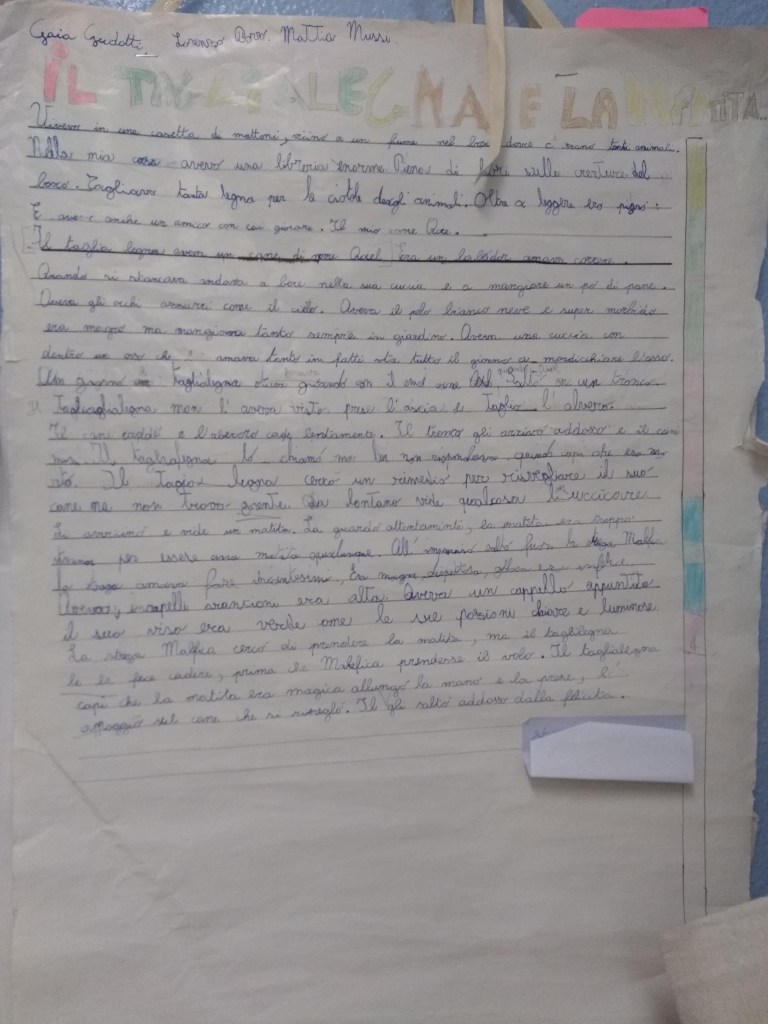 Gaia Guidotti, Lorenzo Mattia Mussi.
IL TAGLIALEGNA E LA MATITA..
Vivevo in una casetta di mattoni, vicino a un fiume nel bosco dove c'erano tanti animali.
Nella mia casa avevo una libreria enorme. Piena di sulle creature del
bosco. Tagliavo tanta legna per le ciotole degli animali. Oltre a leggere ero pigro:
E avevo anche un amico con cui giocare. Il mio cane
Il taglia legna aveva un cane di nome Era un labrador amava correre.
Quando si stancava andava a bere nella sua cuccia e a mangiare un pó di pane.
Aveva gli occhi azzurri come il cielo. Aveva il pelo bianco neve e super morbido
era magro ma mangiava tanto sempre in giardino. Aveva una cuccia con
dentro un osso che amava tanto in fatti sta tutto il giorno a mordicchiare l'osso.
Un giorno il taglialegna stava giocando con il suo cane saltó su un tronco.
Il non l'aveva visto prese l'ascia e tagliò l'albero.
Il cane e l'albero cade lentamente. Il tronco gli arrivò addosso e il cane
Il taglialegna lo chiamó ma lui non rispondeva quindi capì che era
Il taglia legna cercò un rimedio per risvegliare il suo
cane ma non trovò niente. Da lontano vide qualcosa luccicare
Si avvicinó e vide un matita. La guardò attentamente, la matita era troppo
strana per essere una matita qualunque. All'improvviso saltò fuori la strega Malfia
la strega amava fare incantesimi, Era magra, dispettosa, gelosa e infelice.
Aveva i capelli arancioni era alta aveva un cappello appuntito
il suo viso era verde come le sue pozioni chiare e luminose
La strega Malfica cercó di prendere la matita, ma il taglialegna
la fece cadere, prima che Malefica prendesse il volo. Il taglialegna
capì che la matita era magica allungó la mano e la prese, l'
appoggió sul cane che si svegló. Il gli saltó addosso dalla felicita.